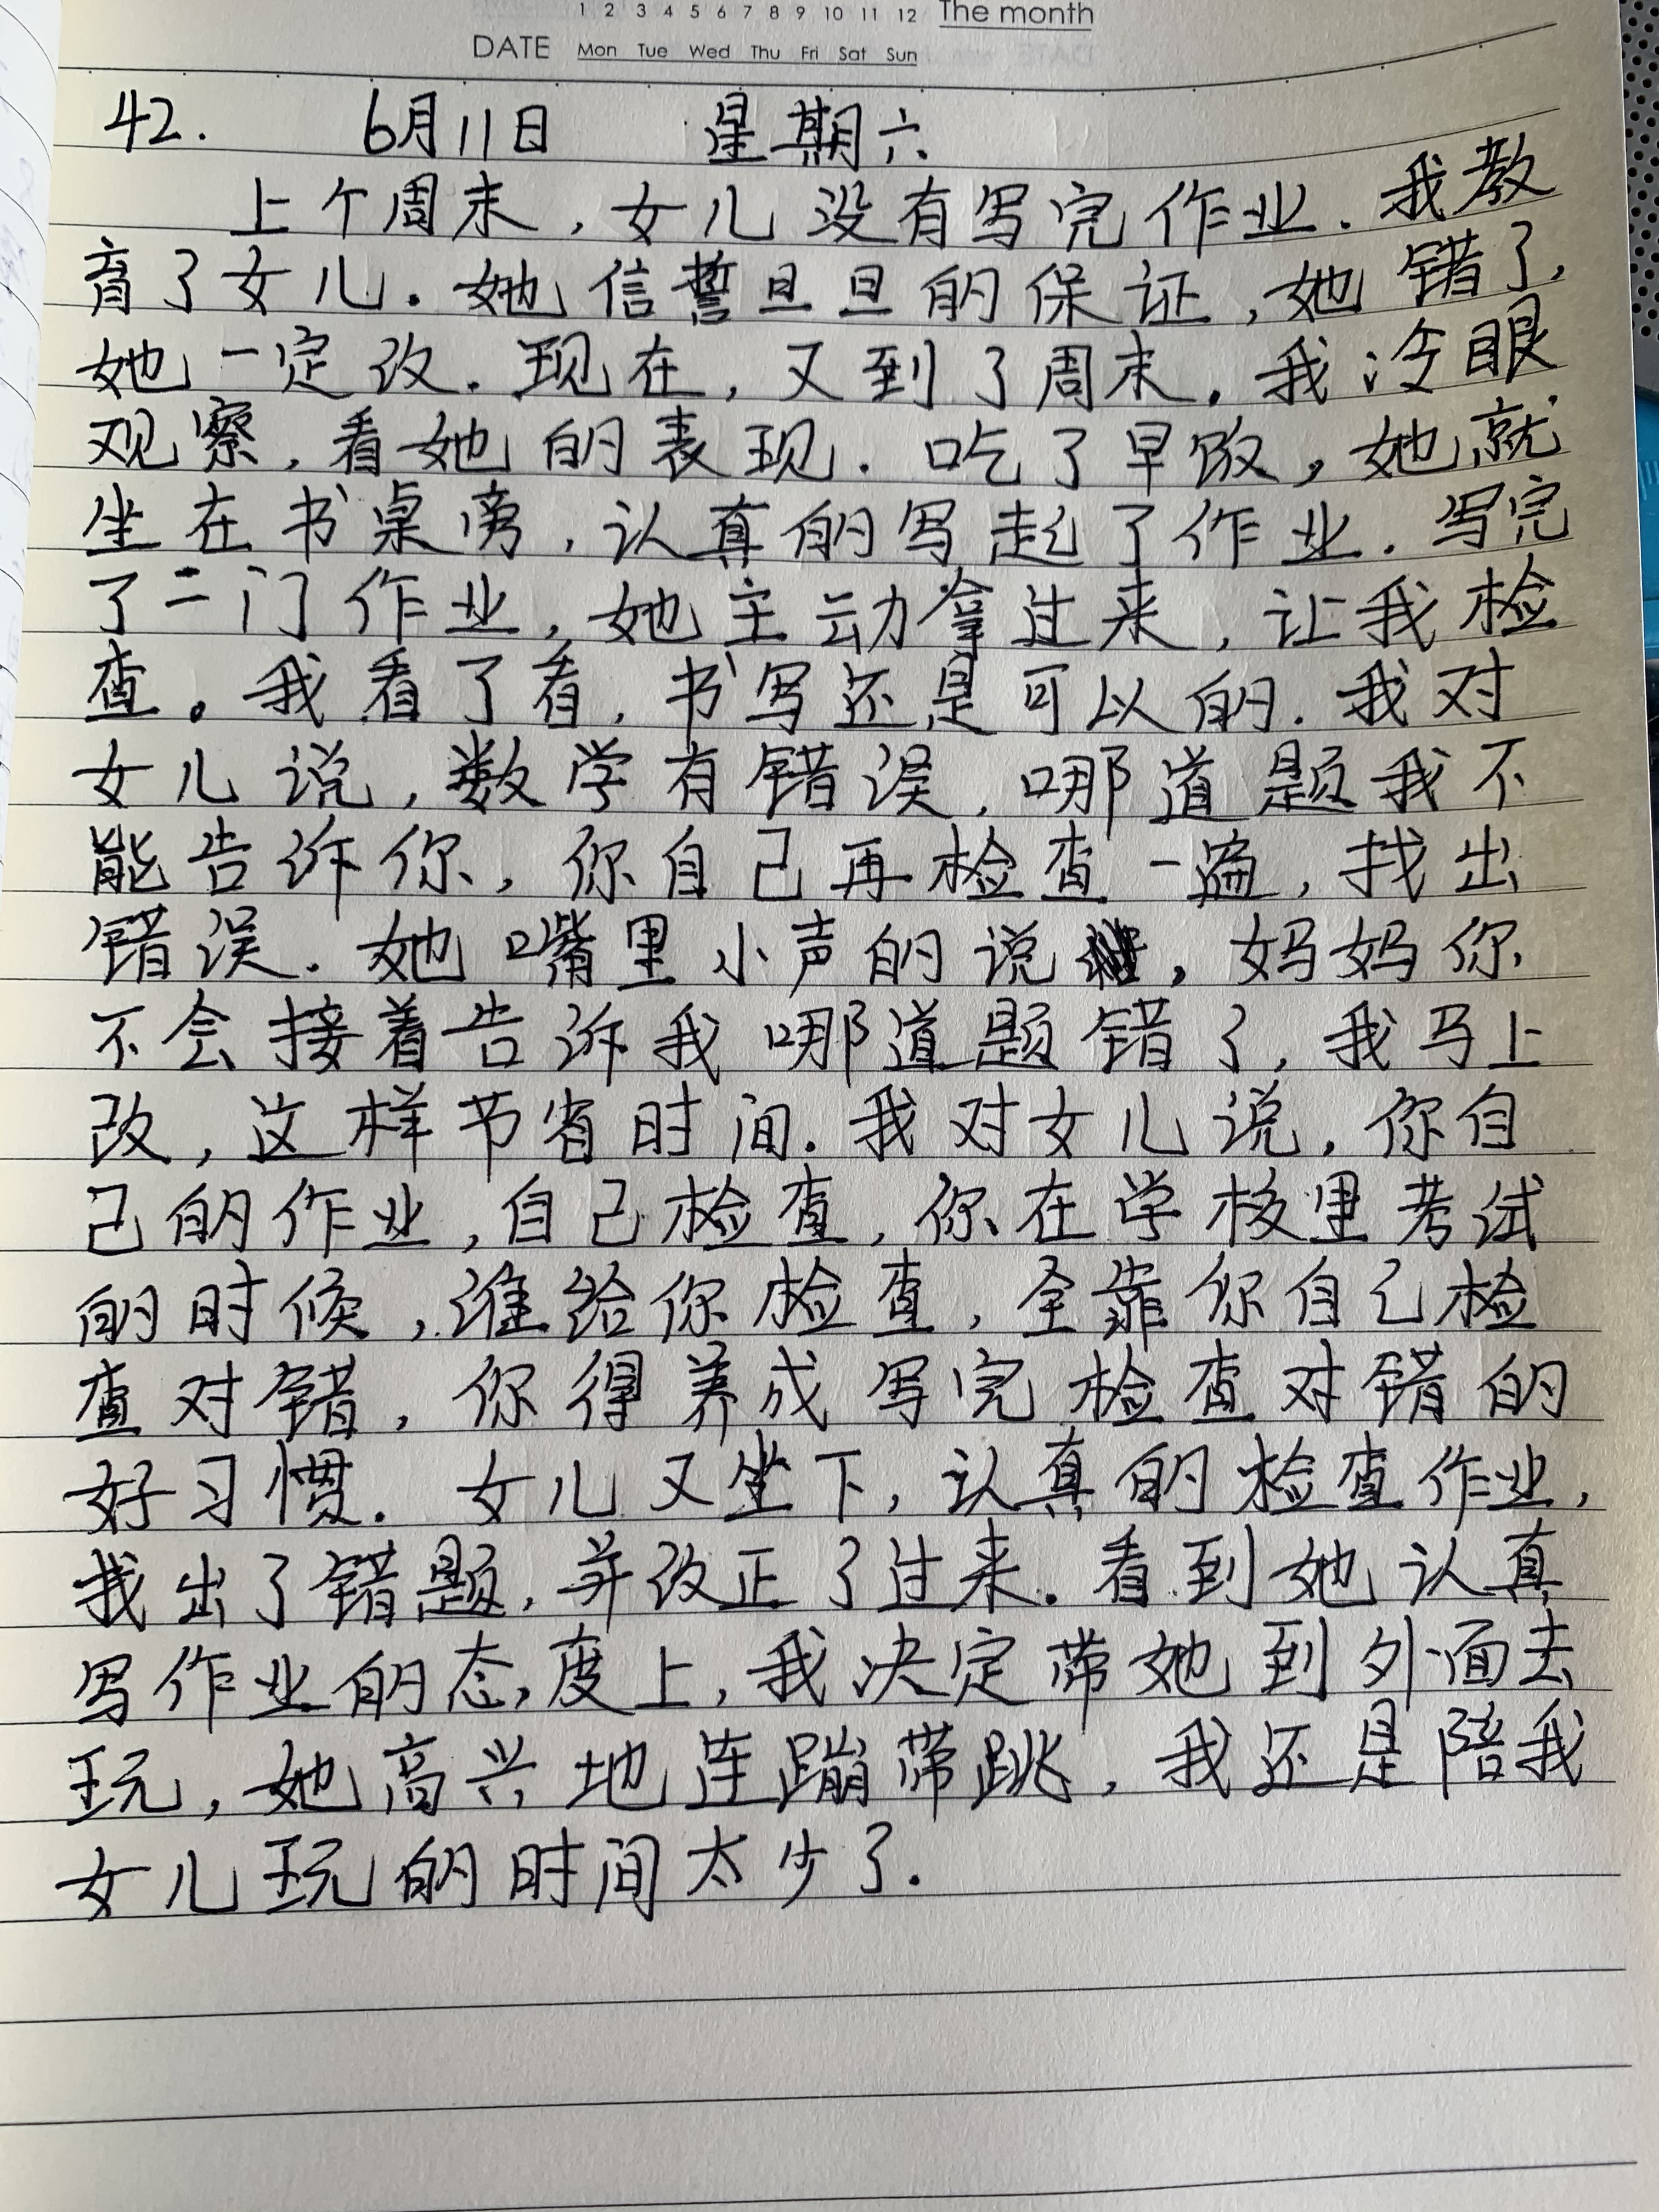 1 2 3 4 5 6 7 8 9 10 11 12 The month
DATE Mon Tue Wed Thu Fri Sat Sun
42. 6月11日 星期六
上个周末,女儿没有写完作业.我教
育了女儿.她信誓旦旦的保证,她错了,
她一定改.现在,又到了周末.我冷眼
观察,看她的表现.吃了早饭,她就
坐在书桌旁,认真的写起了作业.写完
了二门作业,她主动拿过来,让我检
查。我看了看,书写还是可以的.我对
女儿说,数学有错误,哪道题我不
能告诉你,你自己再检查一遍,找出
错误.她嘴里小声的说,妈妈你
不会接着告诉我哪道题错了,我马上
改,这样节省时间.我对女儿说,你自
己的作业,自己检查,你在学校里考试
的时候,谁给你检查,全靠你自己检
查对错,你得养成写完检查对错的
好习惯.女儿又坐下,认真的检查作业,
找出了错题,并改正了过来.看到她认真
写作业的态度上,我决定带她到外面去
玩,她高兴地连蹦带跳,我还是陪我
女儿玩的时间太少了.